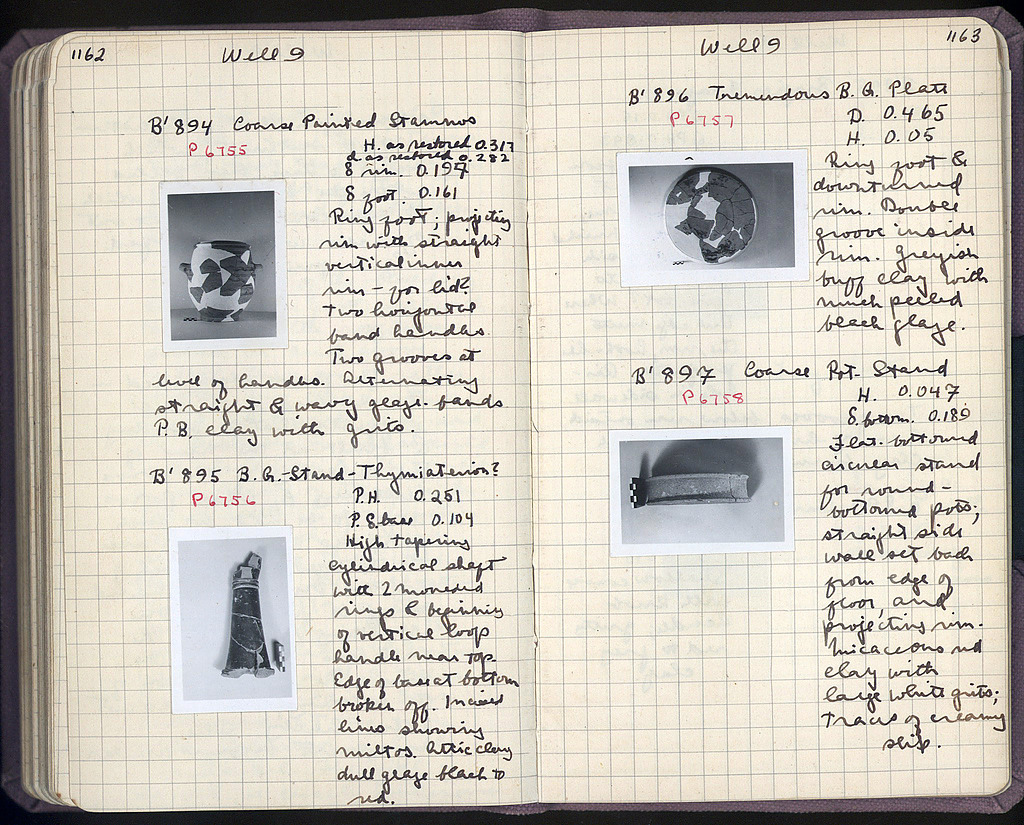 1162
Well 9
B' 894 Coarse Painted Stamnos
P 6755
H. as restored 0.317
d. as restored 0.282
δ rim. 0.194
δ foot. 0.161
Ring foot; projecting
rim with straight
vertical inner
rim - for lid?
Two horizontal
band handles.
Two grooves at
level of handles. Alternating
straight & wavy glaze bands
P.B. clay with grits.
B' 895 B.G.-Stand-Thymiaterion?
P 6756
P.H. 0.251
P.δ.base 0.104
High tapering
cylindrical shaft
with 2 moulded
rings & beginning
of vertical loop
handle near top.
Edge of base at bottom
broken off. Incised
lines showing
miltos. Attic clay
dull glaze black to
red.
1163
Well 9
B' 896 Tremendous B.G. Plate
P 6757
D. 0.465
H. 0.05
Ring foot &
downturned
rim. Double
groove inside
rim. Greyish
buff clay with
much peeled
black glaze.
B' 897 Coarse Pot-Stand
P 6758
H. 0.047
δ. bottom. 0.189
Flat-bottomed
circular stand
for round-
bottomed pots;
straight side
wall set back
from edge of
floor, and
projecting rim.
Micaceous red
clay with
large white grits;
traces of creamy
slip.